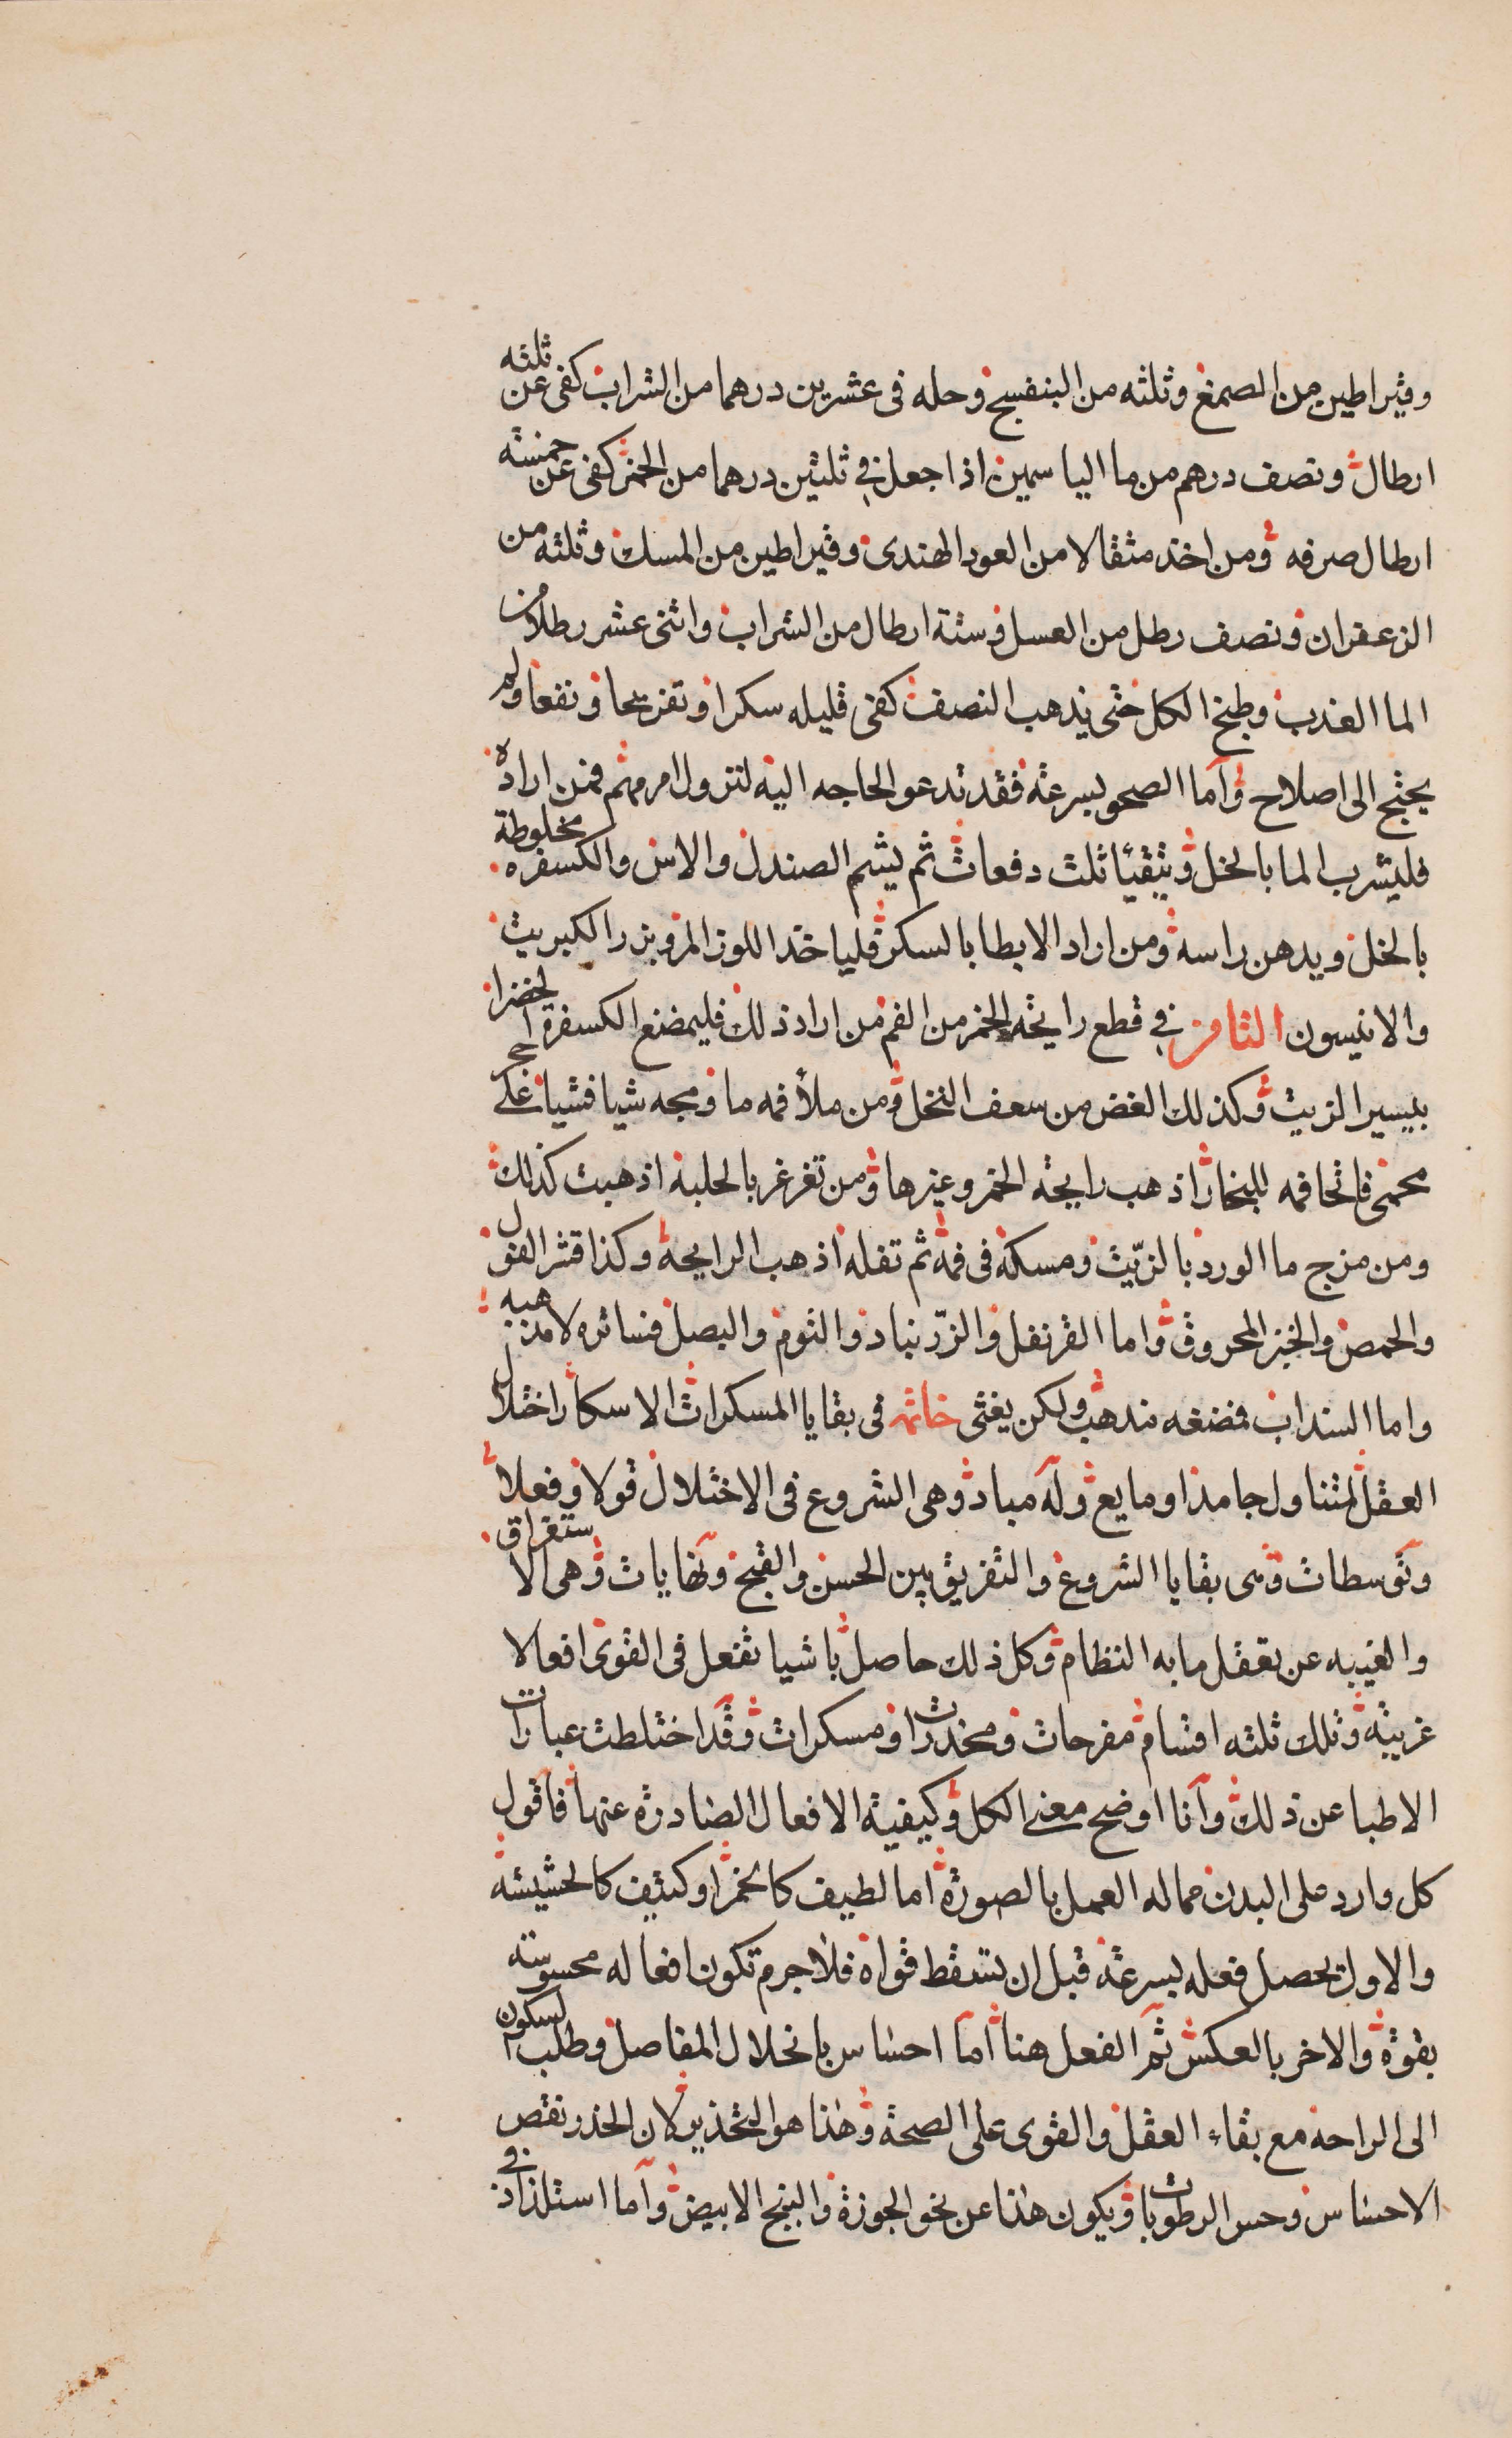 وقيراطين من الصمغ وثلثه من البنفسج وحله فى عشرين درهما من الشراب كفى عن ثلثه
ارطال ونصف درهم من ما الياسمين اذا جعل في ثلثين درهما من الخمر كفى عن خمسة
ارطال صرفه ومن اخذ مثقالا من العود الهندى وقيراطين من المسك وثلثه من
الزعفران ونصف رطل من العسل وستة ارطال من الشراب واثنى عشر رطلا من
الما العذب وطبخ الكل حتى يذهب النصف كفى قليله سكرا وتفريحا ونفعا ولم
يحتج الى اصلاح واما الصحو بسرعة فقد تدعو الحاجه اليه لنزول امر مهم فمن اراده
فليشرب الما بالخل ويتقيأ ثلث دفعات ثم يشم الصندل والاس والكسفره مخلوطة
بالخل ويدهن راسه ومن اراد الابطا بالسكر فلياخذ اللوز المر وبزر الكبريت
والانيسون الثامن في قطع رايحة الخمر من الفم من اراد ذلك فليمضغ الكسفرة الخضرا
بيسير الزيت وكذلك الغض من سعف النخل ومن ملأ فمه ما ومجه شيا فشيا على حجر
محمى فاتحا فمه للبخار اذهب رايحة الخمر وغيرها ومن تغرغر بالحلبة اذهبت كذلك
ومن مزج ما الورد بالزيت ومسكه فى فمه ثم تفله اذهب الرايحة وكذا قشر الفول
والحمص والخبز المحروق واما القرنفل والزرنباد والثوم والبصل فساتره لا مذهبه
واما السنداب فمضغه مذهب ولكن يغثى خاتمه فى بقايا المسكرات الاسكار اختلال
العقل لمتناول جامد او مايع وله مباد وهى الشروع فى الاختلال قولا وفعلا
وتوسطات وهى بقايا الشروع والتفريق بين الحسن والقبح ونهايات وهى الاستغراق
والغيبه عن تعقل ما به النظام وكل ذلك حاصل باشيا تفعل فى القوى افعالا
غريبة وتلك ثلثه اقسام مفرحات ومخدرات ومسكرات وقد اختلطت عبارات
الاطبا عن ذلك وانا اوضح معنى الكل وكيفية الافعال الصادرة عنها فاقول
كل وارد على البدن مما له العمل بالصورة اما لطيف كالخمر او كثيف كالحشيشة
والاول يحصل فعله بسرعة قبل ان تسقط قواه فلا جرم تكون افعاله محسوسة
بقوة والاخر بالعكس ثم الفعل هنا اما احساس بانحلال المفاصل وطلب السكون
الى الراحه مع بقاء العقل والقوى على الصحة وهذا هو التخذير لان الخذر نقص
الاحساس وحبس الرطوبات ويكون هذا عن نحو الجوزة والبنج الابيض واما استلذاذ فى